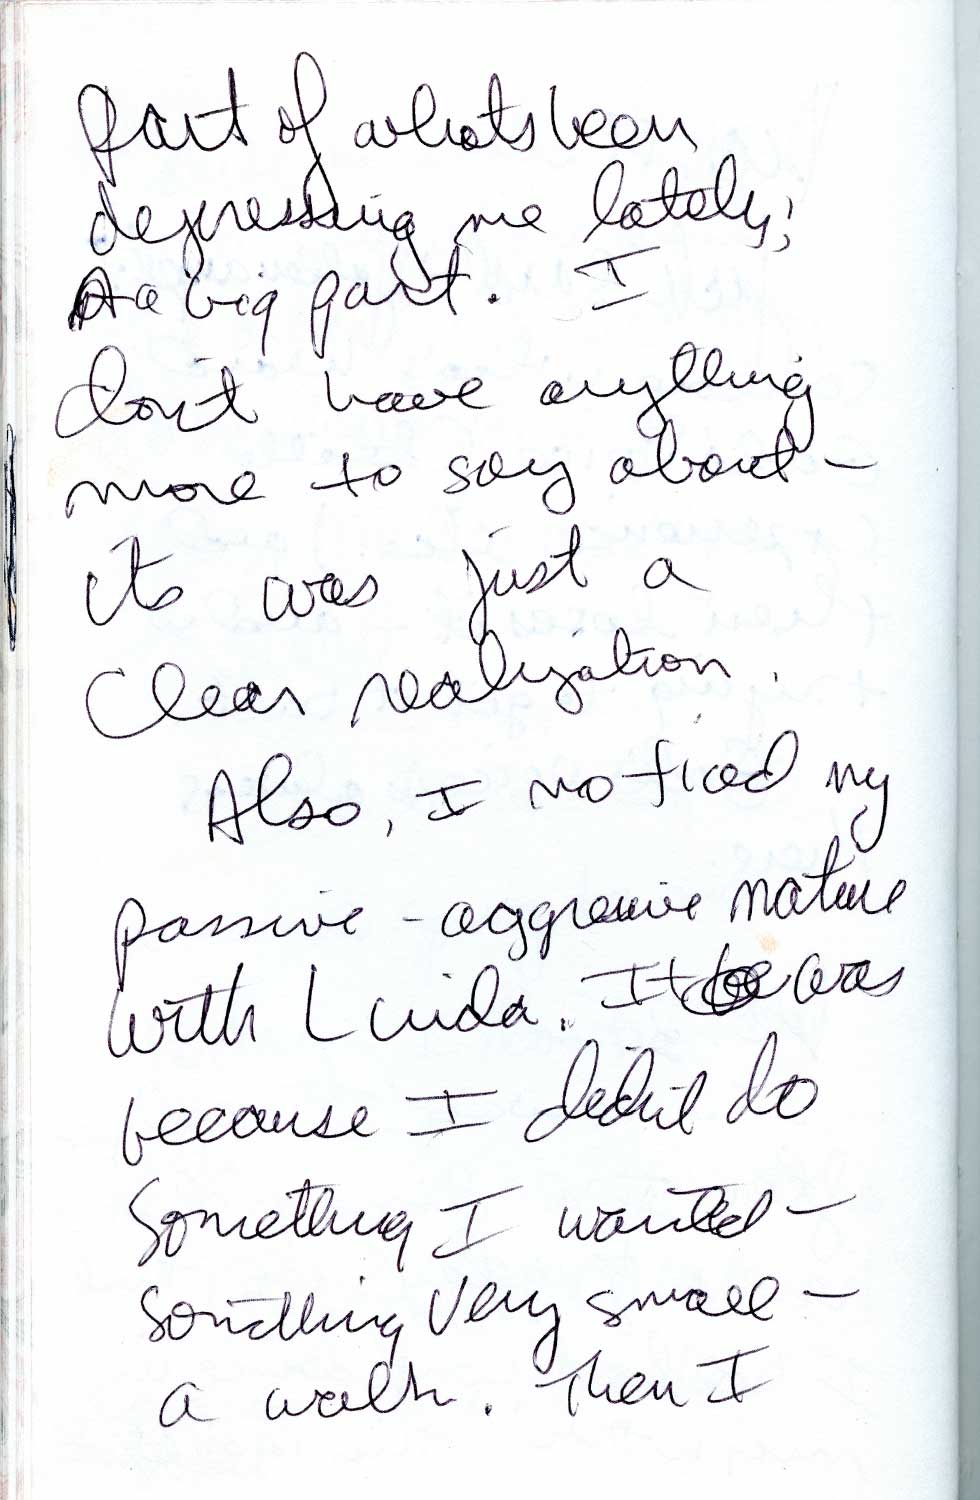 part of whats been
depressing me lately;
A a big part. I
don't have anything
more to say about –
its was just a
clear realization.
Also, I noticed my
passive - aggressive nature
with Linda. It was
because I didn't do
something I wanted –
something very small –
a walk. Then I